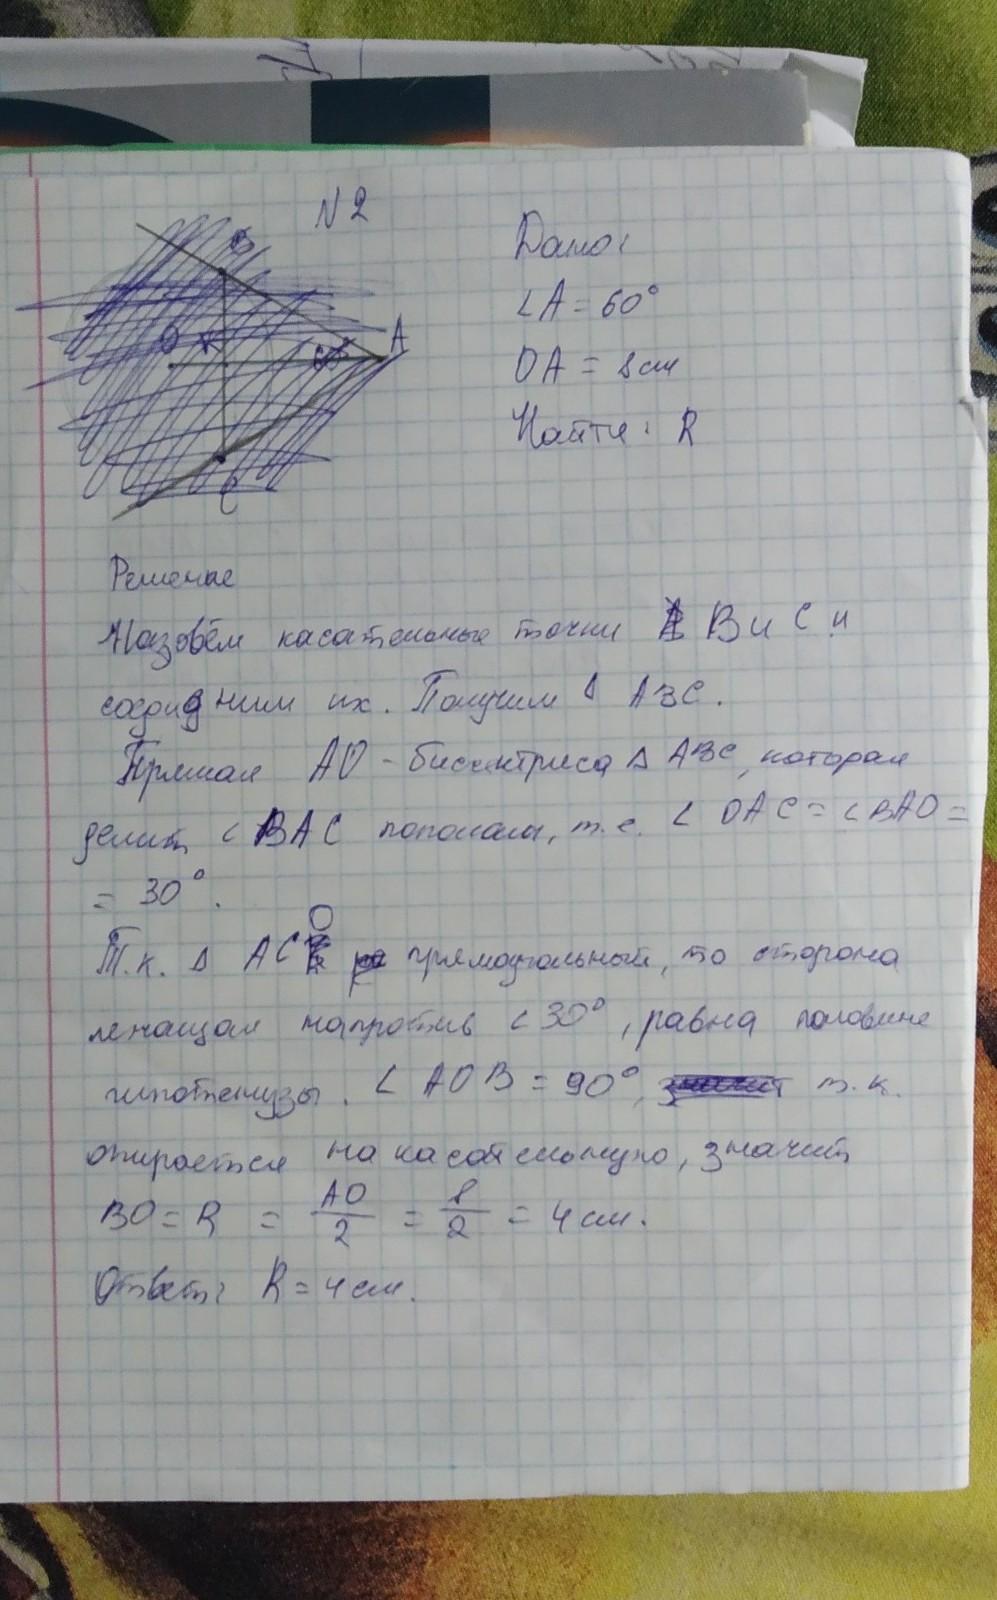 N 2
B
O
A
C
Дано:
∠A = 60°
OA = 8 см
Найти: R
Решение
Назовём касательные точки B и C и
соединим их. Получим Δ ABC.
Прямая AO - биссектриса Δ ABC, которая
делит ∠BAC пополам, т.е. ∠ OAC = ∠BAO =
= 30°.
Т.к. Δ ACO прямоугольный, то сторона
лежащая напротив ∠30°, равна половине
гипотенузы. ∠ AOB = 90°, т.к.
опирается на касательную, значит
BO = R = AO/2 = 8/2 = 4 см.
Ответ: R = 4 см.